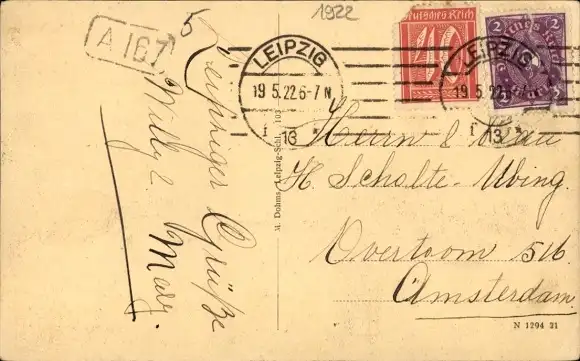 1922
5
A 167
Leipziger Grüße
Willy & Mary.
LEIPZIG
19.5.22.6-7 N
13
Deutsches Reich
40
LEIPZIG
19.5.22.6
13
2 2
Deutsches Reich
2 Mark 2
M. Dohms, Leipzig-Schl. 103
Herrn & Frau
H. Scholte-Ubing.
Overtoom 516
Amsterdam.
N 1294 31